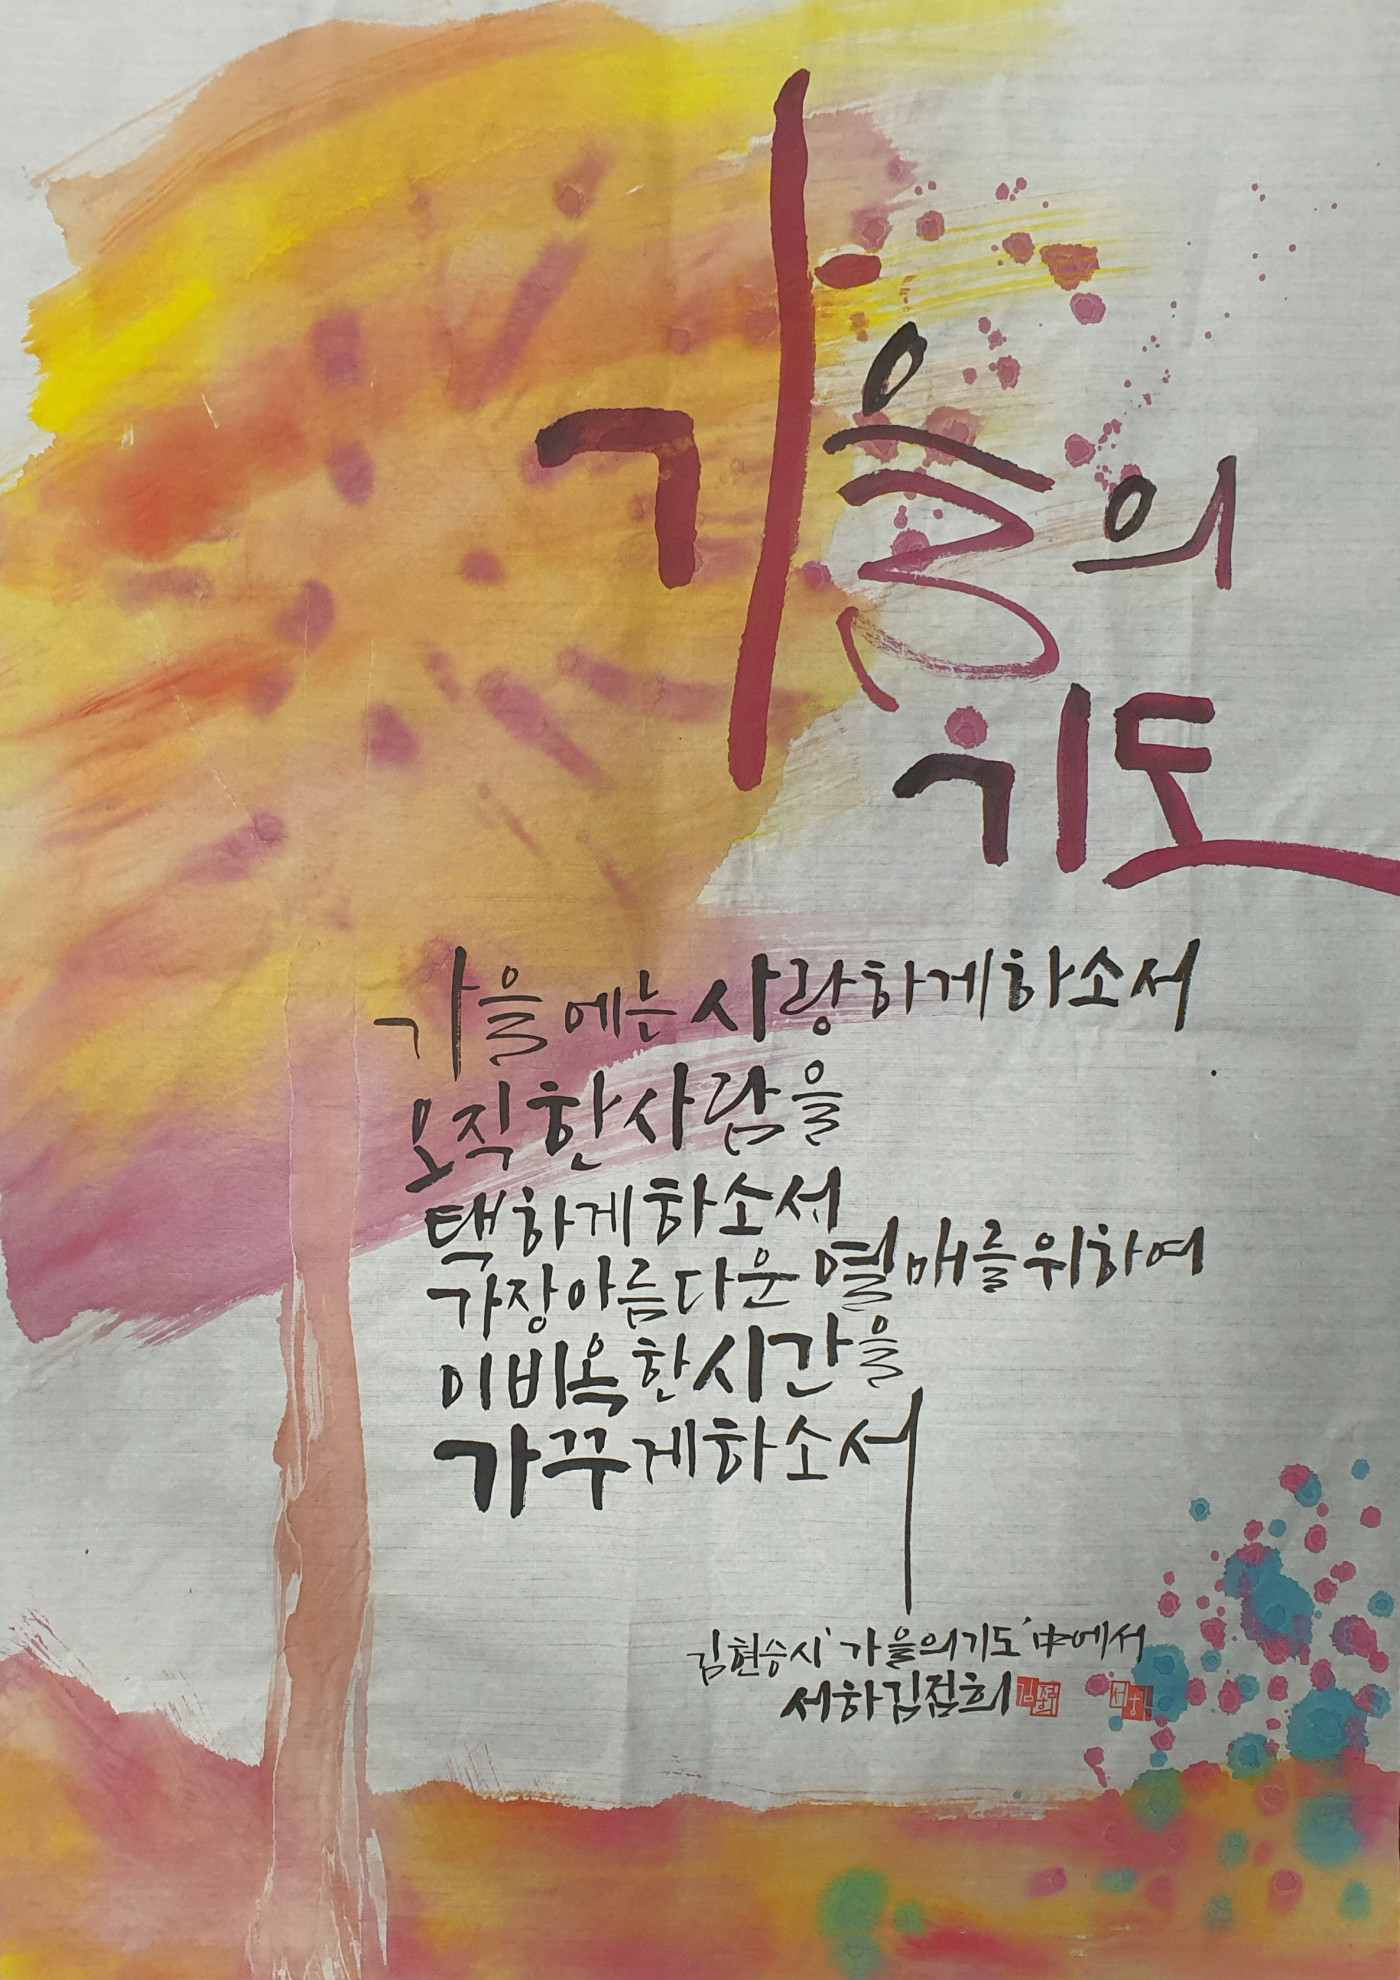 가을의
기도
가을에는 사랑하게하소서
오직한사람을
택하게하소서
가장아름다운 열매를위하여
이비옥한시간을
가꾸게하소서
김현승시 '가을의기도' 中에서
세하김점희